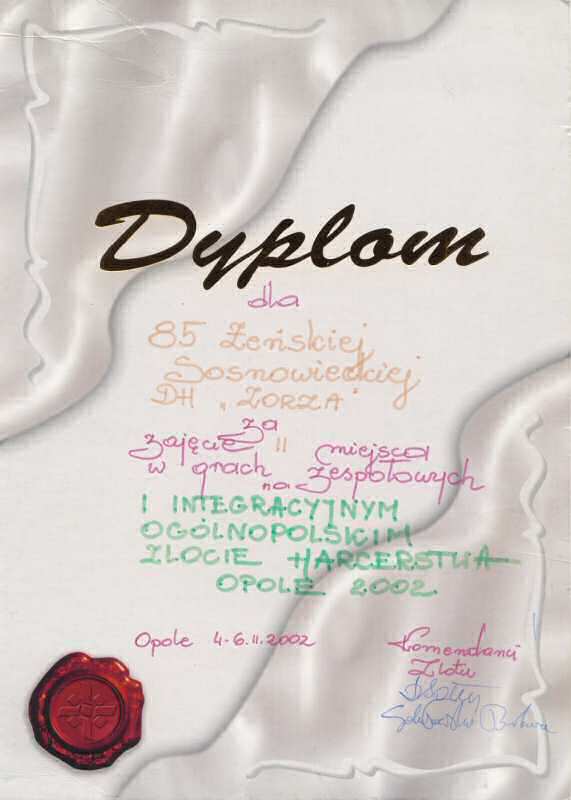 Dyplom
dla
85 Żeńskiej
Sosnowieckiej
DH "ZORZA"
za
zajęcie II miejsca
w grach zespołowych
na
I INTEGRACYJNYM
OGÓLNOPOLSKIM
ZLOCIE HARCERSTWA
OPOLE 2002
Opole 4-6.II.2002
Komendanci
Zlotu